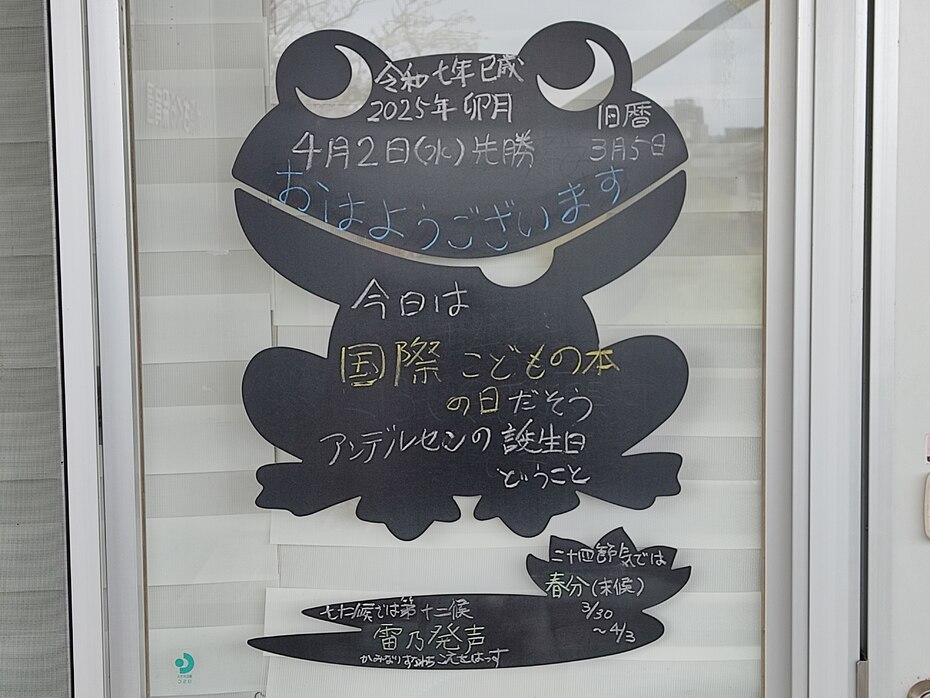 令和七年 巳歳
2025年 卯月
旧暦
4月2日(水)先勝
3月5日
おはようございます
今日は
国際こどもの本
の日だそう
アンデルセンの誕生日
ということ
二十四節気では
春分(末候)
3/30
～4/3
七十二候では第十二候
雷乃発声
かみなりすなわちこえをはっす